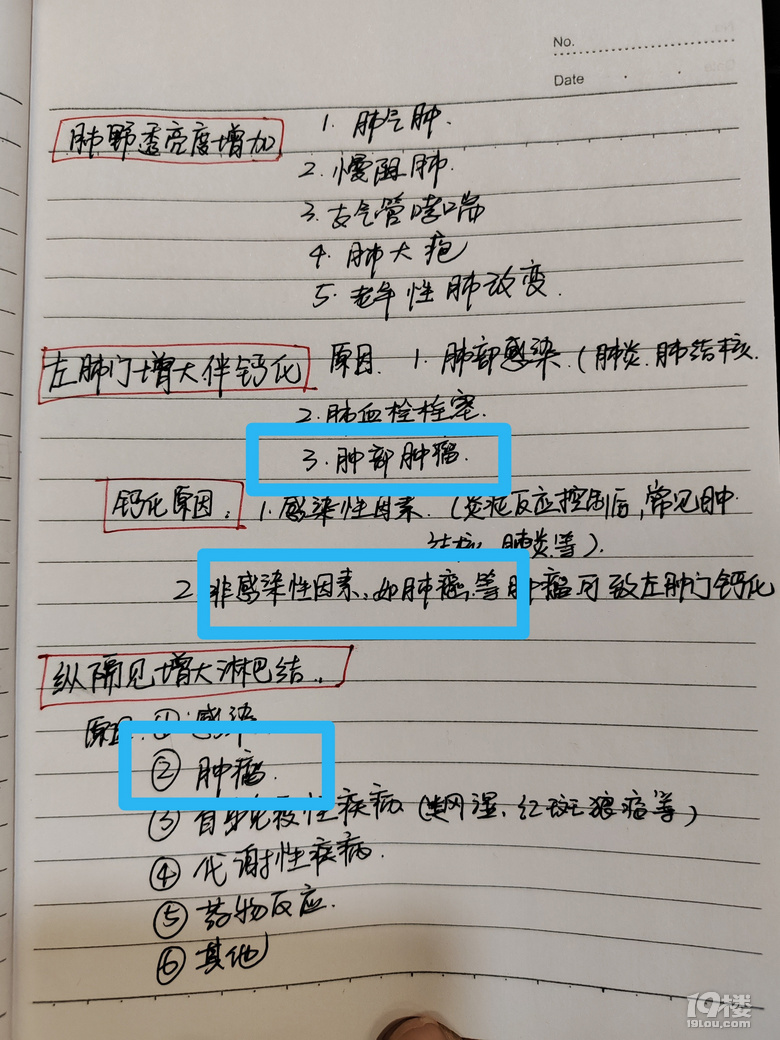 No.
Date
肺野透亮度增加 1. 肺气肿.
2. 慢阻肺.
3. 支气管哮喘
4. 肺大疱
5. 老年性肺改变.
左肺门增大伴钙化 原因. 1. 肺部感染.(肺炎.肺结核.
2. 肺血栓栓塞.
3. 肿部肿瘤.
钙化原因: 1. 感染性因素. (炎症反应控制后,常见肿.
结核、肺炎等).
2 非感染性因素,如肺癌,等肿瘤可致左肺门钙化
纵隔见增大淋巴结..
原因. ① 感染.
② 肿瘤.
③ 自身免疫性疾病. (类风湿、红斑狼疮等)
④ 代谢性疾病.
⑤ 药物反应.
⑥ 其他
19楼
19lou.com